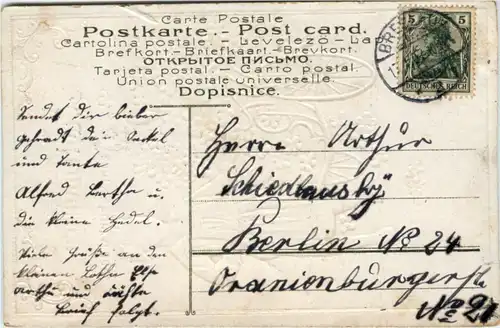 Carte Postale
Postkarte. - Post card.
Cartolina postale. - Levelező-Lap
Brefkort.-Briefkaart.-Brevkort.
ОТКРЫТОЕ ПИСЬМО.
Tarjeta postal. - Carto postal.
Union postale universelle.
Dopisnice.
5 5
DEUTSCHES REICH
BRE
Sendet dir lieber
dein
und Tante
Alfred Bertha u.
die kleine Hedel.
Viele Grüße an den
kleinen Lothar Else
und
Brief folgt.
Herrn Arthur
Berlin No 24
Oranienburgerstr
No 21